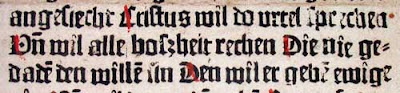 angesiecht Cristus wil do vrteil sprechen
Vñ wil alle boszheit rechen Die nie ge-
dadē den willē sin Den wil er gebē ewige